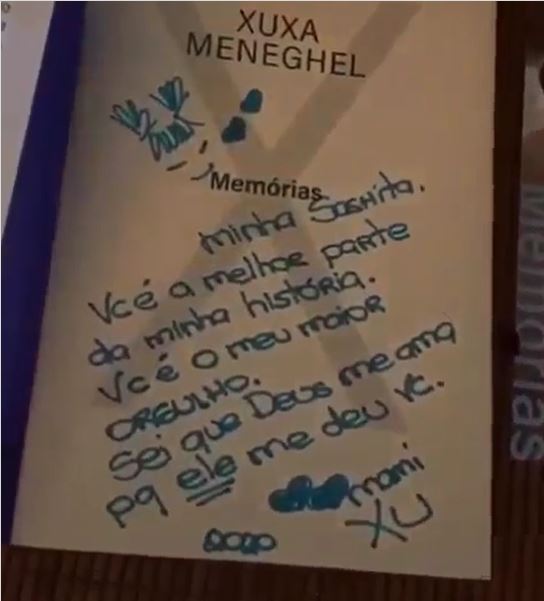 XUXA
MENEGHEL
Xuxa
Memórias
minha Sashita.
Vcé a melhor parte
da minha história.
Vc é o meu maior
ORGULHO.
Sei que Deus me ama
pq ele me deu vc.
mami
XU
2020
Memórias